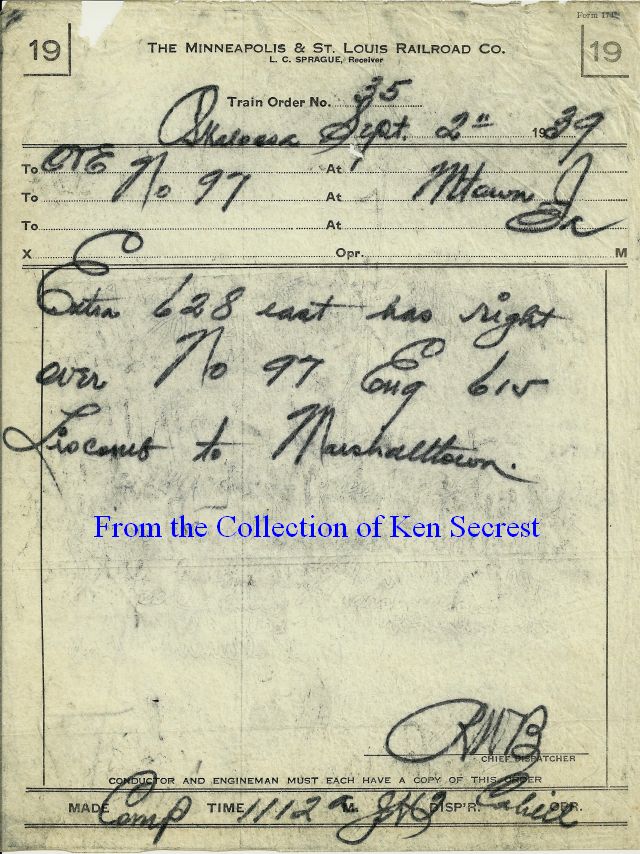 Form 1742
19 THE MINNEAPOLIS & ST. LOUIS RAILROAD CO. 19
L. C. SPRAGUE, Receiver
Train Order No. 35
Oskaloosa Sept. 2" 1939
To OTE At
To No 97 At Mtown Jc
To At
X Opr. M
Extra 628 east has right
over No 97 Eng 615
Liscomb to Marshalltown.
From the Collection of Ken Secrest
RWB
CHIEF DISPATCHER
CONDUCTOR AND ENGINEMAN MUST EACH HAVE A COPY OF THIS ORDER
MADE Comp TIME 1112 a M. DISP'R. Cahill OPR.